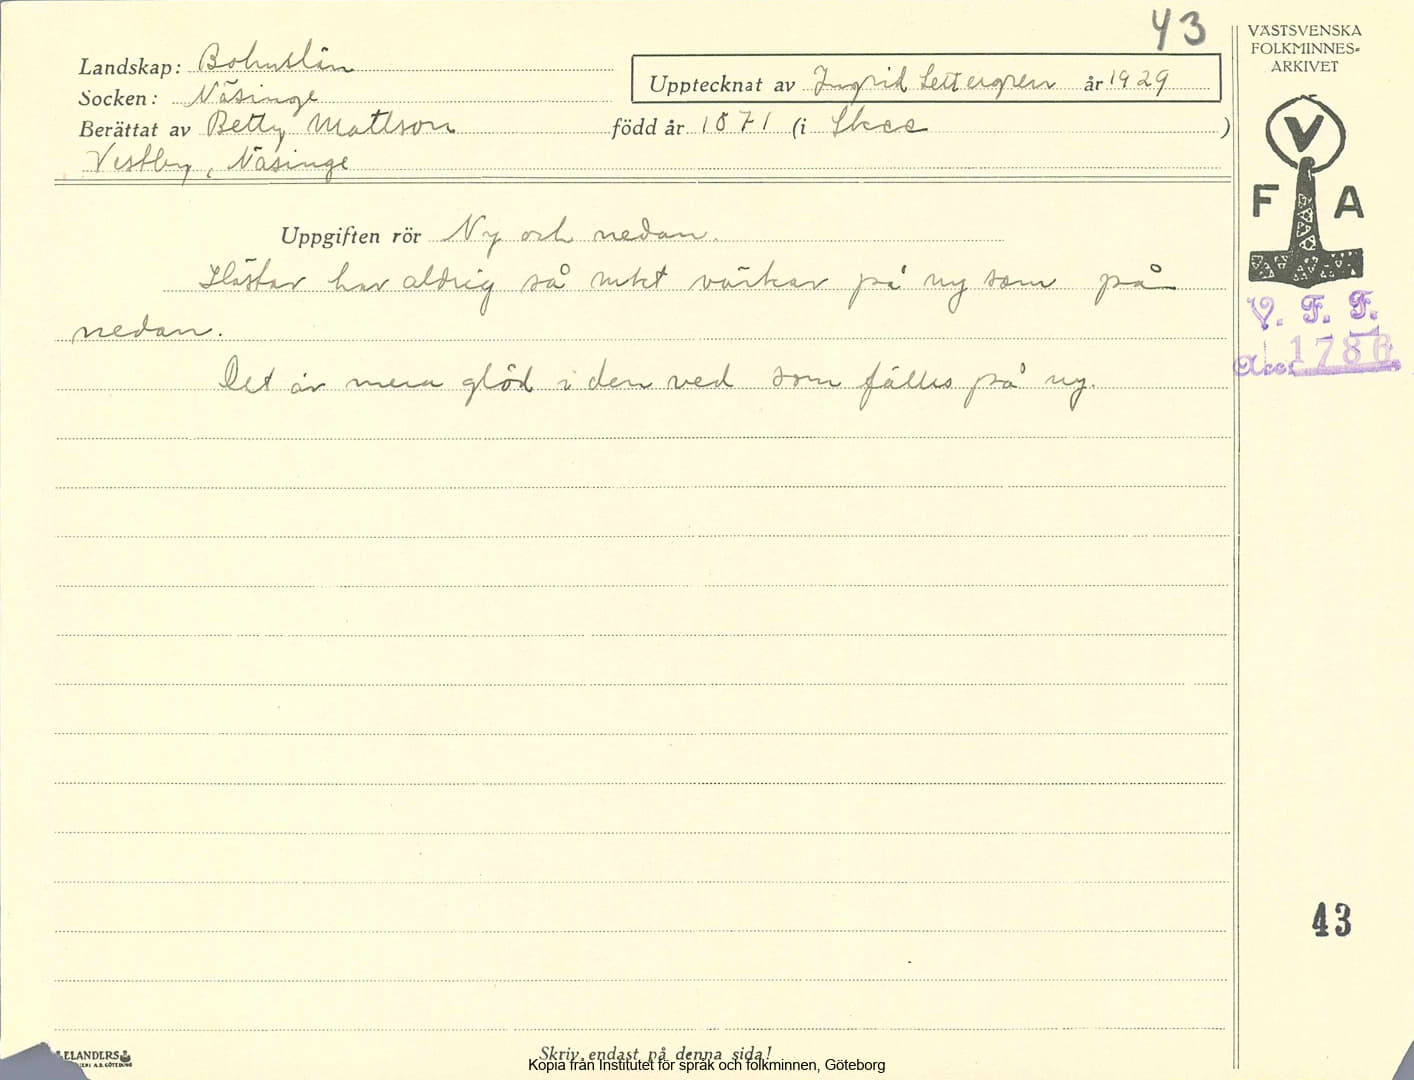 43
VÄSTSVENSKA
FOLKMINNES-
ARKIVET
Landskap: Bohuslän
Upptecknat av Ingrid Settergren år 1929
Socken: Näsinge
Berättat av Betty Mattson född år 1871 (i Skee )
Vestby, Näsinge
V
F A
Uppgiften rör Ny och nedan.
Hästar har aldrig så mkt värkar på ny som på
nedan.
Det är mera glöd i den ved som fälles på ny.
V. F. F.
Acc: 1786
43
ELANDERS
A.B. GÖTEBORG
Skriv endast på denna sida!
Kopia från Institutet för språk och folkminnen, Göteborg